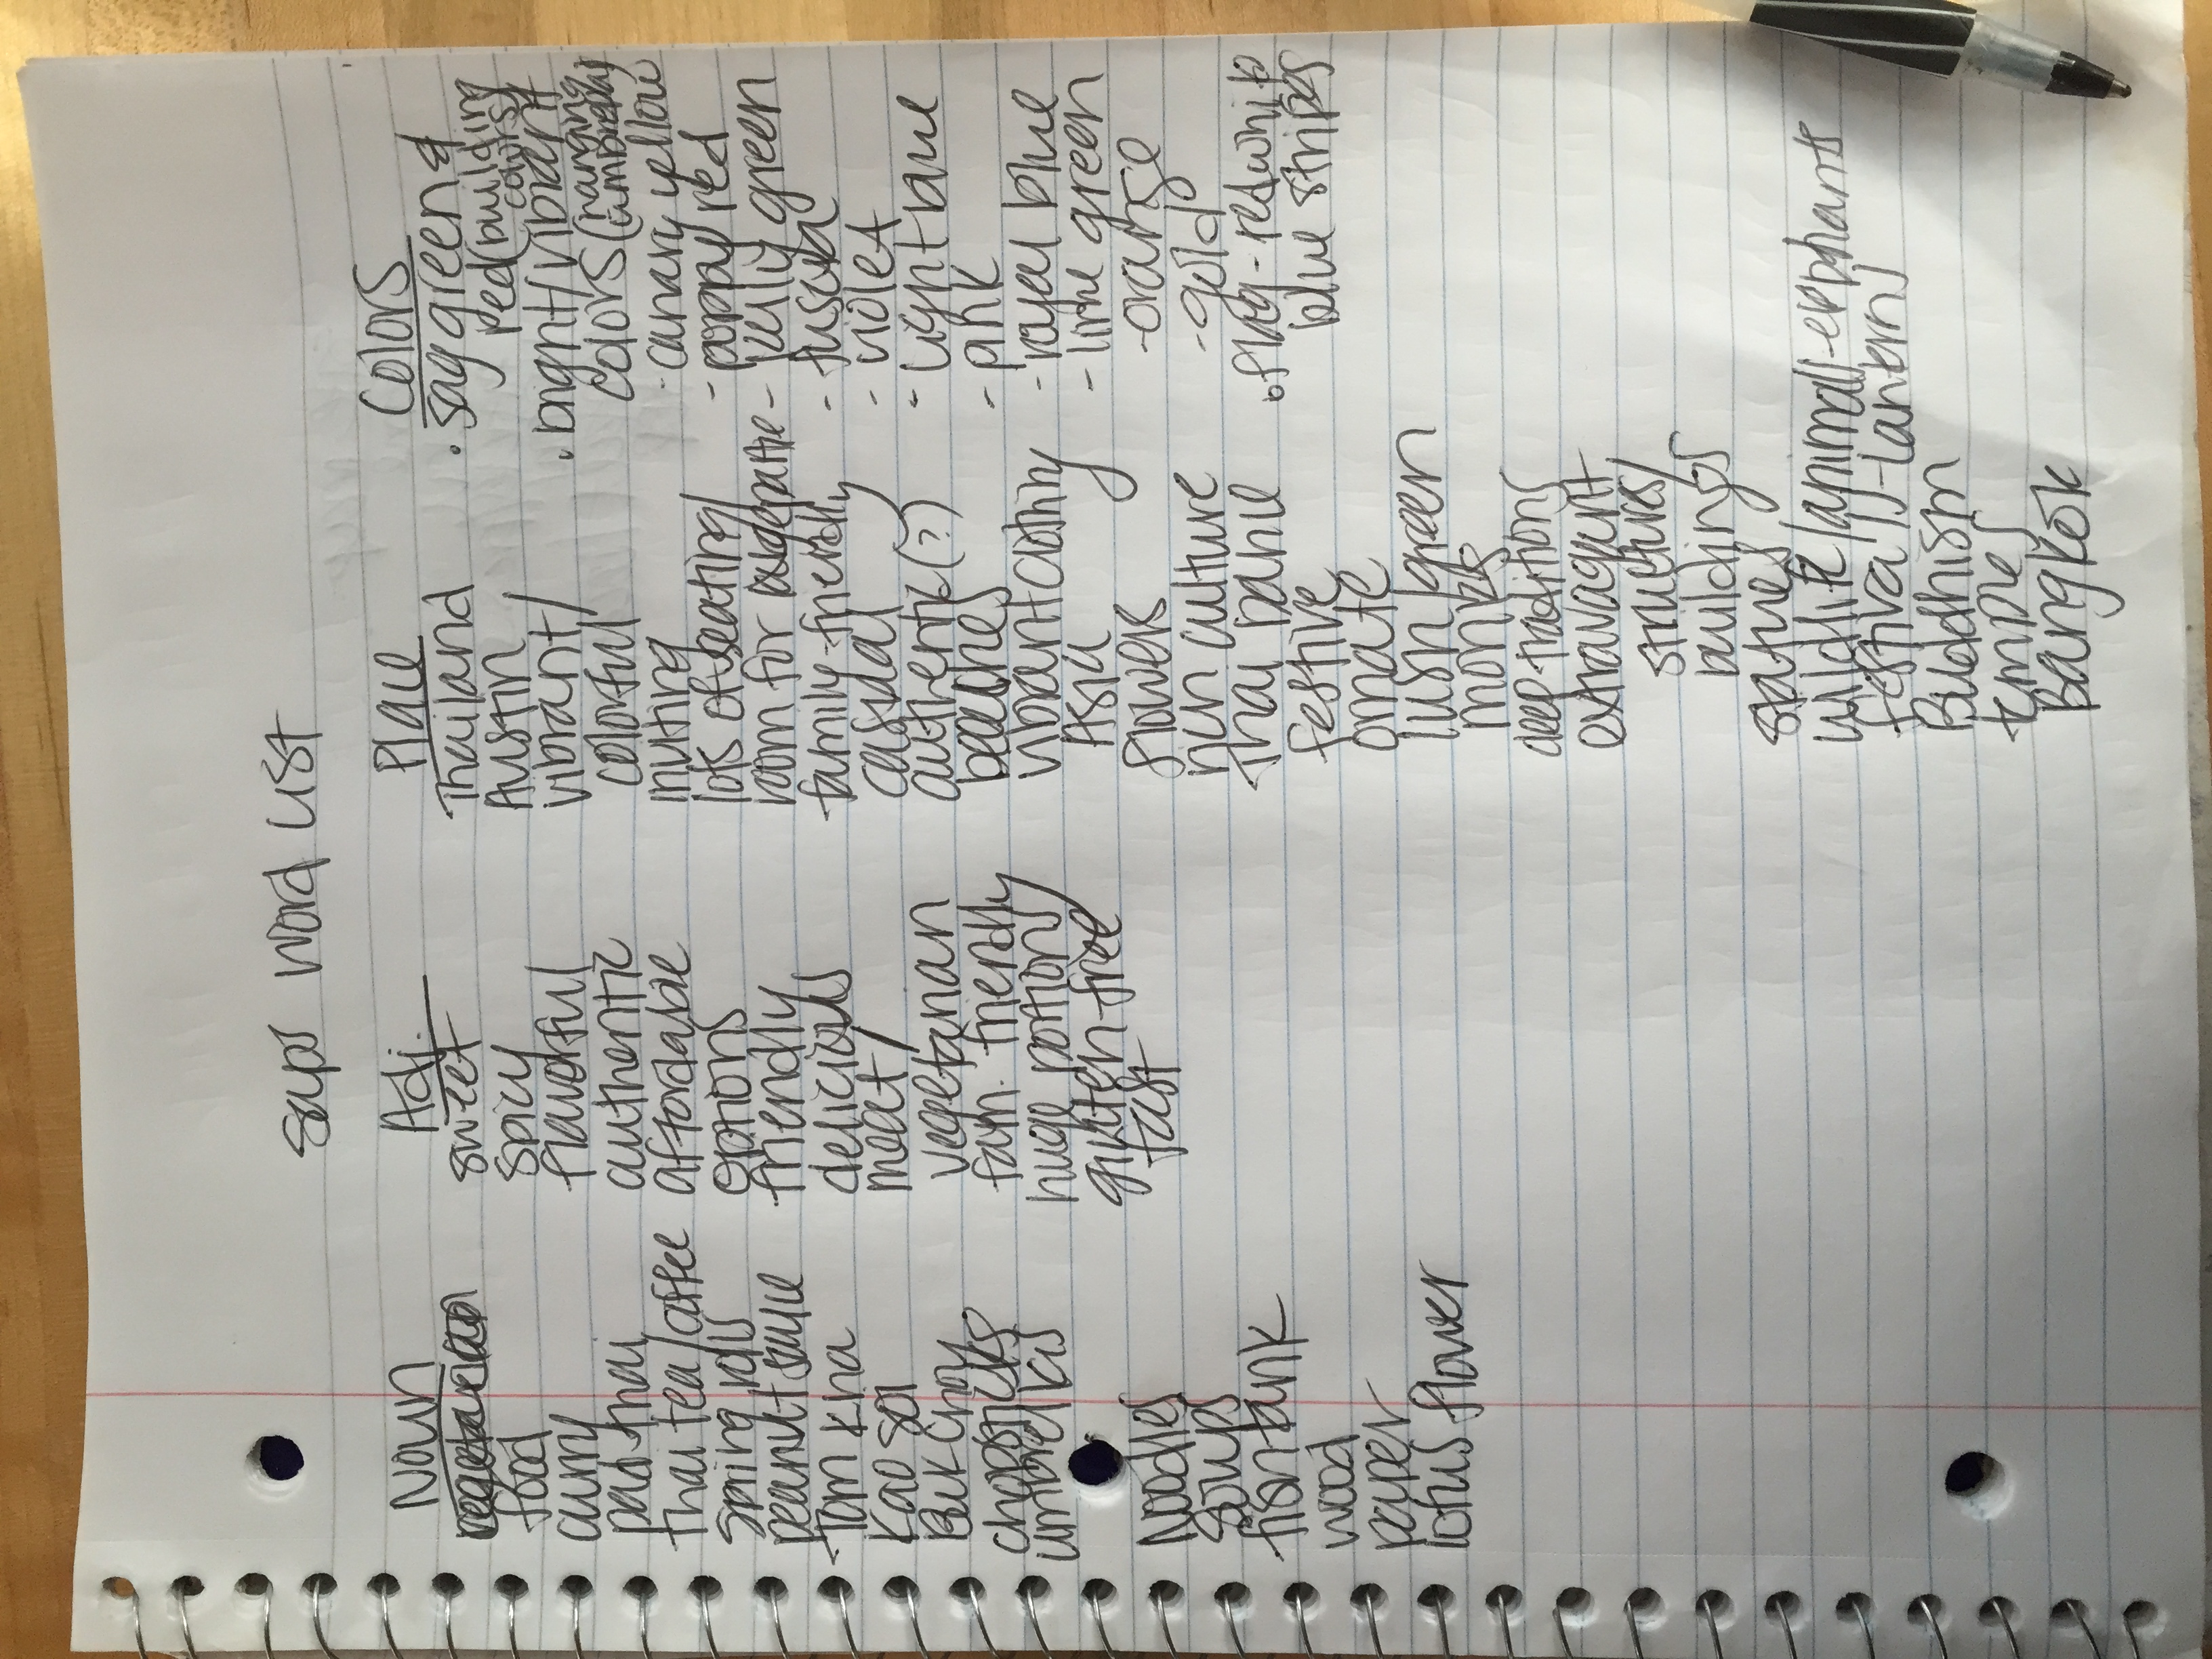 saps word list
Noun
food
curry
pad thai
Thai tea/coffee
spring rolls
peanut sauce
Tom Kha
Kao soi
Buk Choy
chopsticks
umbrellas
Noodles
soups
fish tank
wood
paper
lotus flower
Adj.
sweet
spicy
flavorful
authentic
affordable
options
friendly
delicious
meat/
vegetarian
fam. friendly
huge portions
gluten-free
fast
Place
Thailand
Austin
vibrant/
colorful
inviting
lots of seating/
room for large partie
family-friendly
casual
authentic(?)
beaches
vibrant clothing
Asia
flowers
rich culture
Thai Dance
festive
ornate
lush/green
monks
deep traditions
extravagant
structures/
buildings
statues
wildlife/animals-elephants
festivals-lanterns
Buddhism
temples
Bangkok
Colors
• sag green &
red (building
colors)
• bright/vibrant
colors (hanging
umbrellas)
- canary yellow
- poppy red
- kelly green
- fuscia
- violet
- light blue
- pink
- royal blue
- lime green
- orange
- gold
• flag - red white
blue stripes